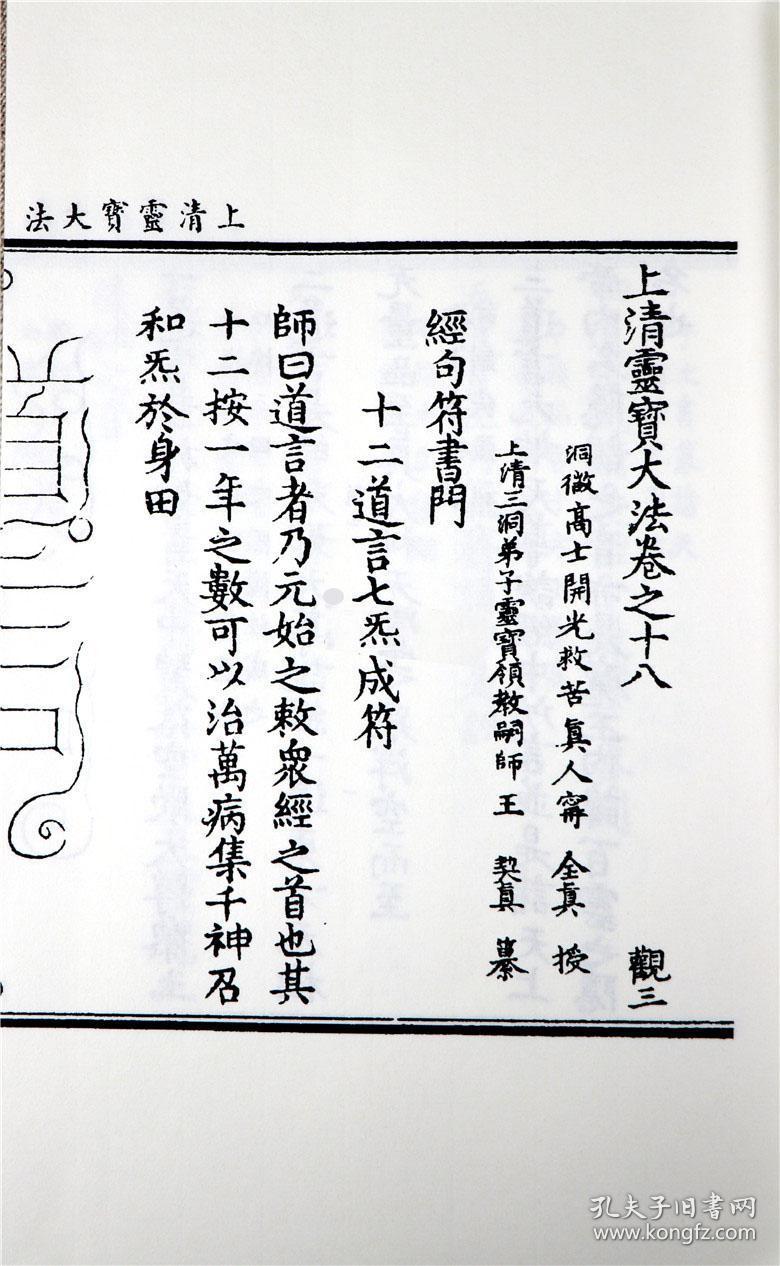 上清靈寶大法
上清靈寶大法卷之十八 觀三
洞微高士開光救苦眞人甯 全眞 授
上清三洞弟子靈寶領教嗣師王 契眞 纂
經句符書門
十二道言七炁成符
師曰道言者乃元始之敕眾經之首也其
十二按一年之數可以治萬病集千神召
和炁於身田
孔夫子旧书网
www.kongfz.com